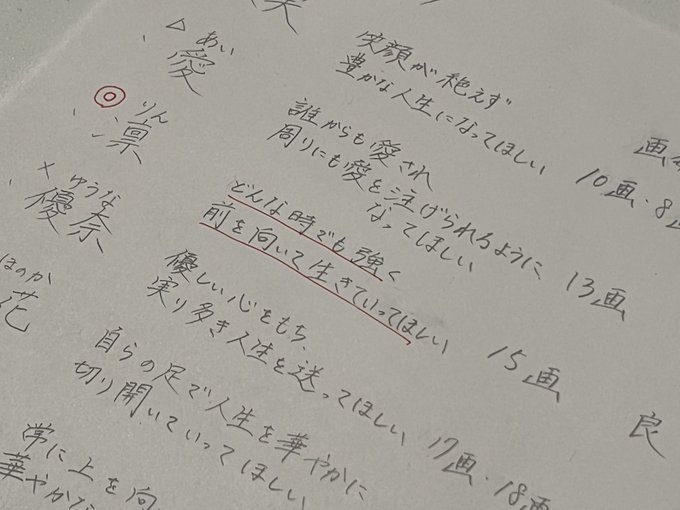 笑顔が絶えず
豊かな人生になってほしい 10画・8画
△ あい
愛
誰からも愛され
周りにも愛を注げられるように
なってほしい 13画
◎ りん
凛
どんな時でも強く
前を向いて生きていってほしい 15画 良
× ゆうな
優奈
優しい心をもち、
実り多き人生を送ってほしい 17画・18画
ほのか
花
自らの足で人生を華やかに
切り開いていってほしい
常に上を向
華やかな